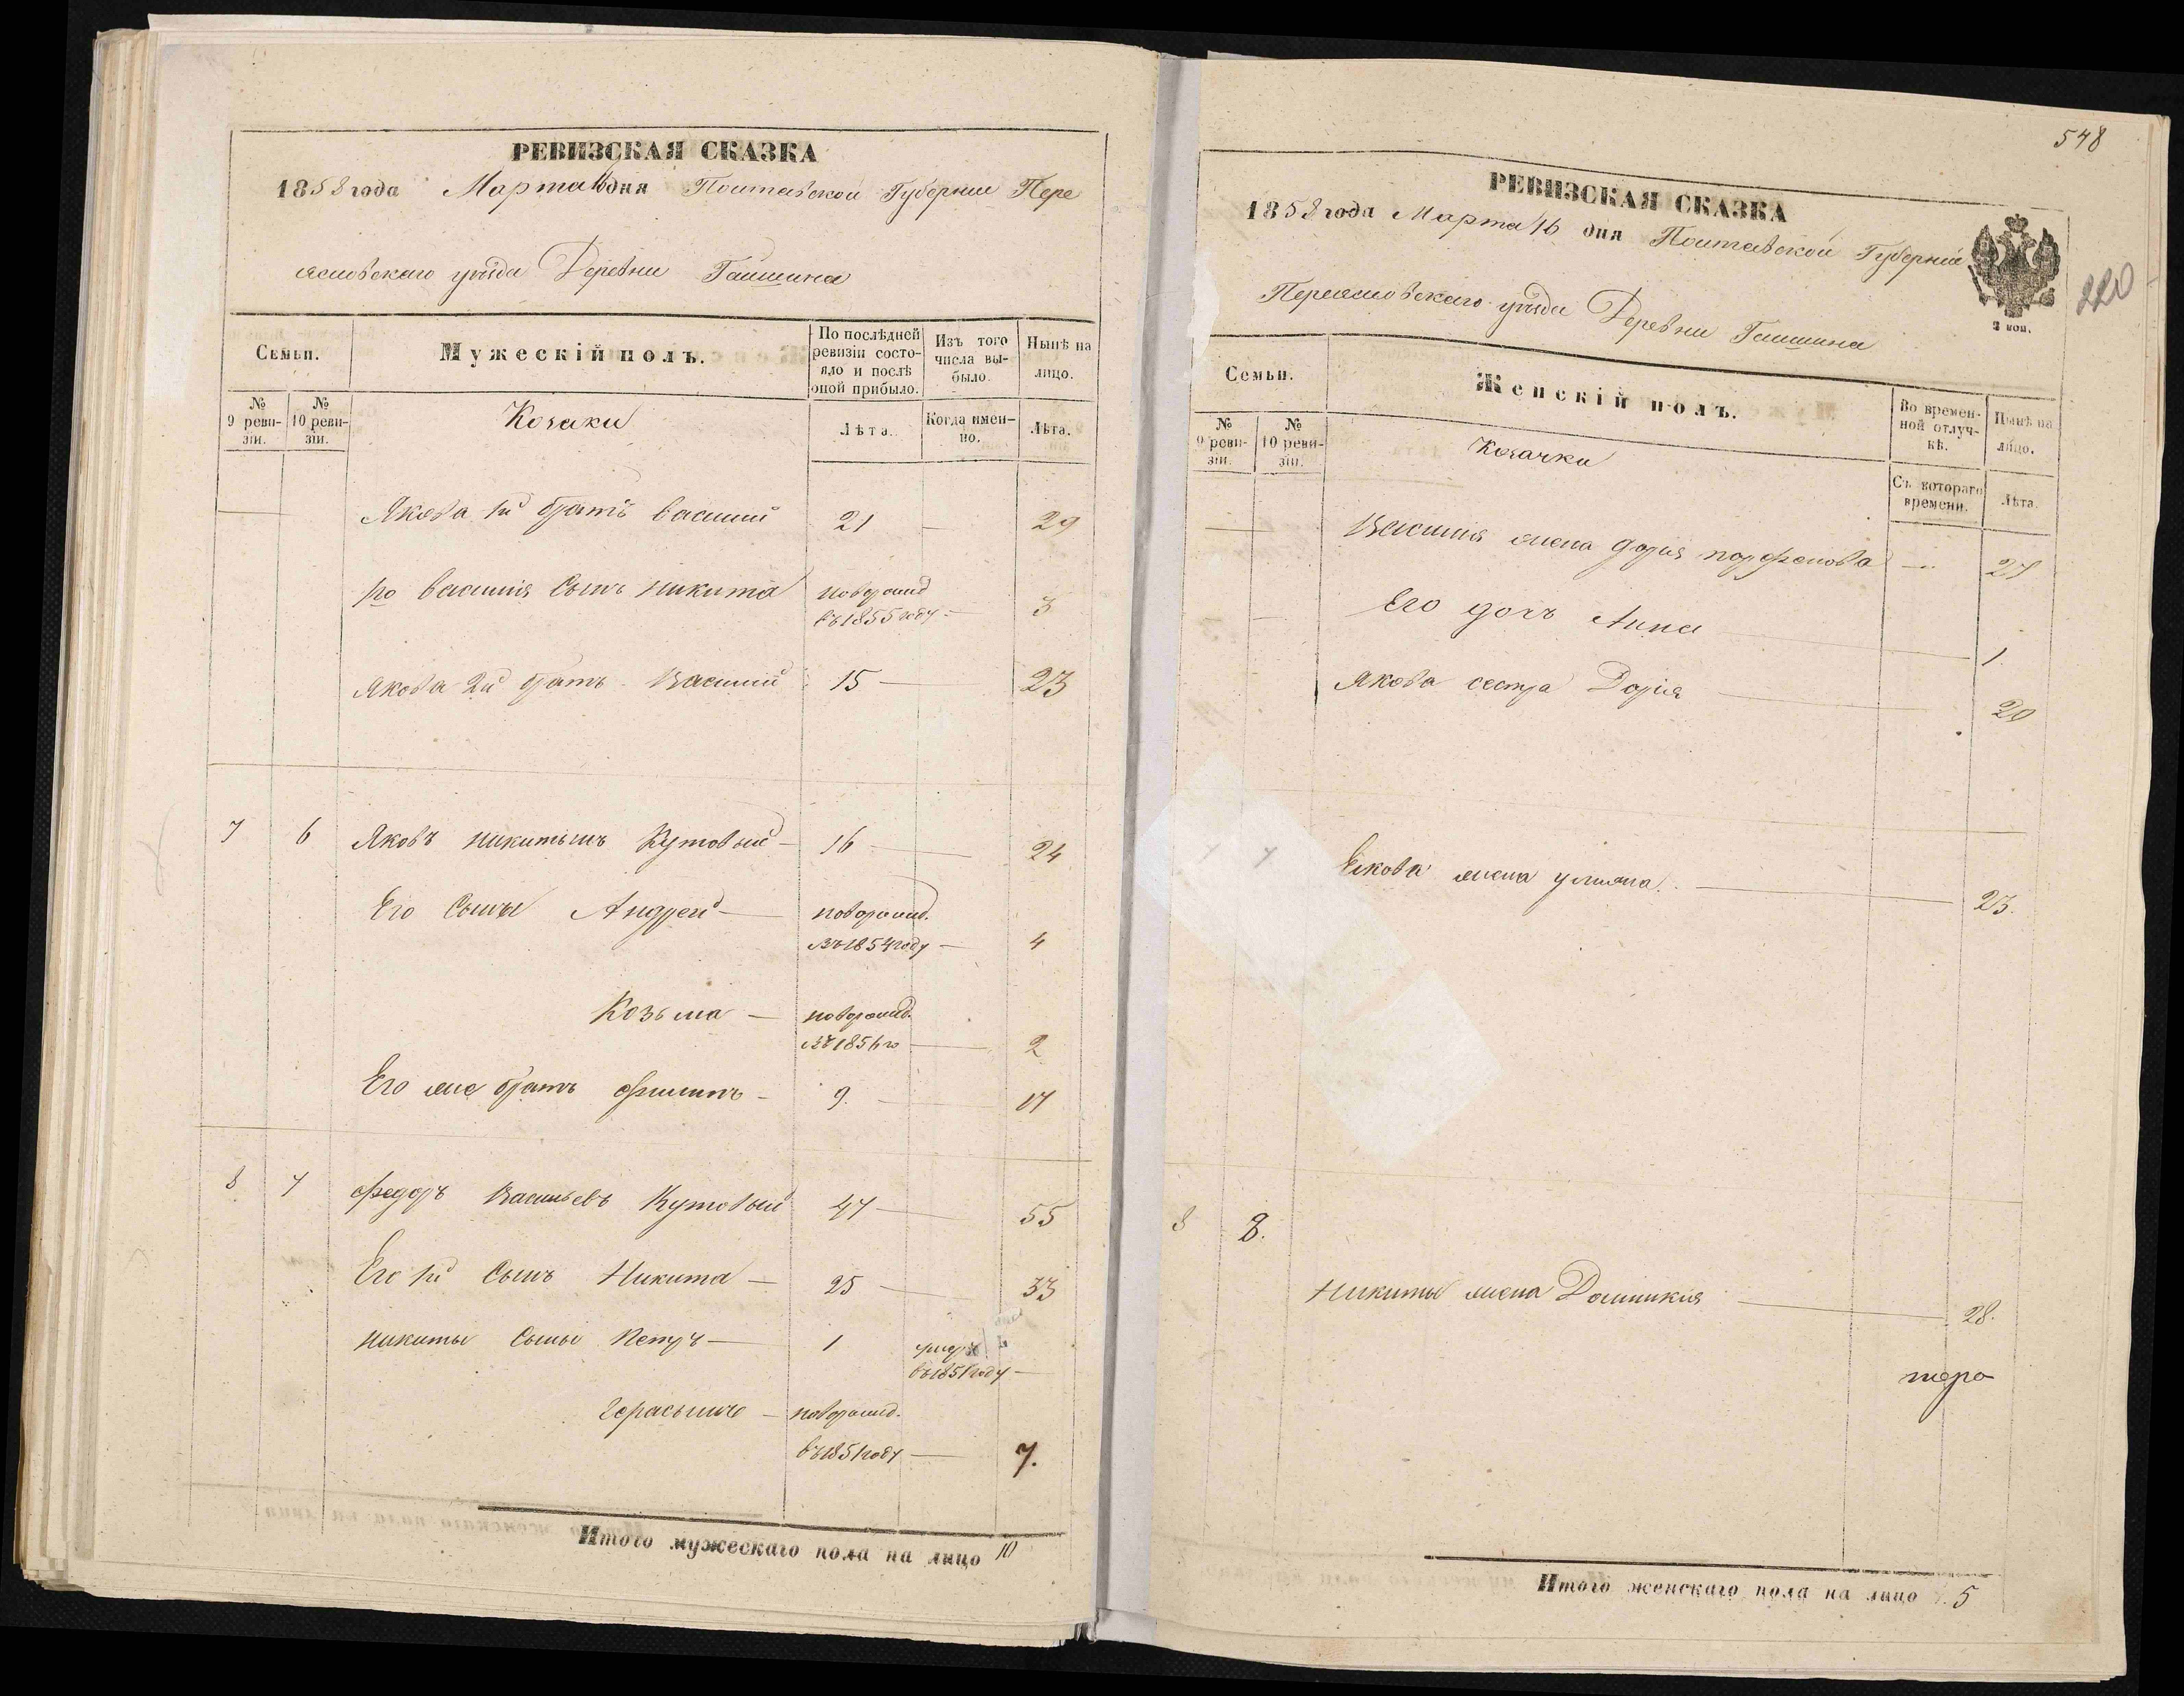 РЕВИЗСКАЯ СКАЗКА
1858 года Марта 16 дня Полтавской Губернии Пере
яславскаго уѣзда Деревни Гайшина
Семьи.
Мужескій полъ.
По послѣдней ревизіи состо-
яло и послѣ
оной прибыло.
Изъ того
числа вы-
было.
Нынѣ на
лицо.
№
9 реви-
зіи.
№
10 реви-
зіи.
Козаки
Лѣта.
Когда имен-
но.
Лѣта.
Якова 1й братъ Василий 21 — 29
1го Василия Сынъ Никита новорожд
въ 1855 году — 3
Якова 2й братъ Василий 15 — 23
7 6 Яковъ Никитинъ Кутовый — 16 — 24
Его Сыны Андрей — новорожд.
въ 1854 году — 4
Козьма — новорожд.
въ 1856 го — 2
Его же братъ Филипъ — 9. — 17
8 7 Федоръ Васильевъ Кутовый 47 — 55
Его 1й Сынъ Никита — 25 — 33
Никиты Сыны Петръ — 1
въ 1851 году —
Герасымъ — новорожд.
въ 1851 году — 7.
Итого мужескаго пола на лицо 10
548
РЕВИЗСКАЯ СКАЗКА
1858 года Марта 16 дня Полтавской Губернии
Переяславскаго уѣзда Деревни Гайшина
220
Семьи.
Женскій полъ.
Во времен-
ной отлуч-
кѣ.
Нынѣ на
лицо.
№
9 реви-
зіи.
№
10 реви-
зіи.
Козачки
Съ котораго
времени.
Лѣта.
Василия жена Дарья Парфенова — 27
Его дочь Анна — 1
Якова сестра Дарія — 20
7 7 Якова жена Ульяна. — 23.
8 8.
Никиты жена Домникия — 28.
Итого женскаго пола на лицо 5